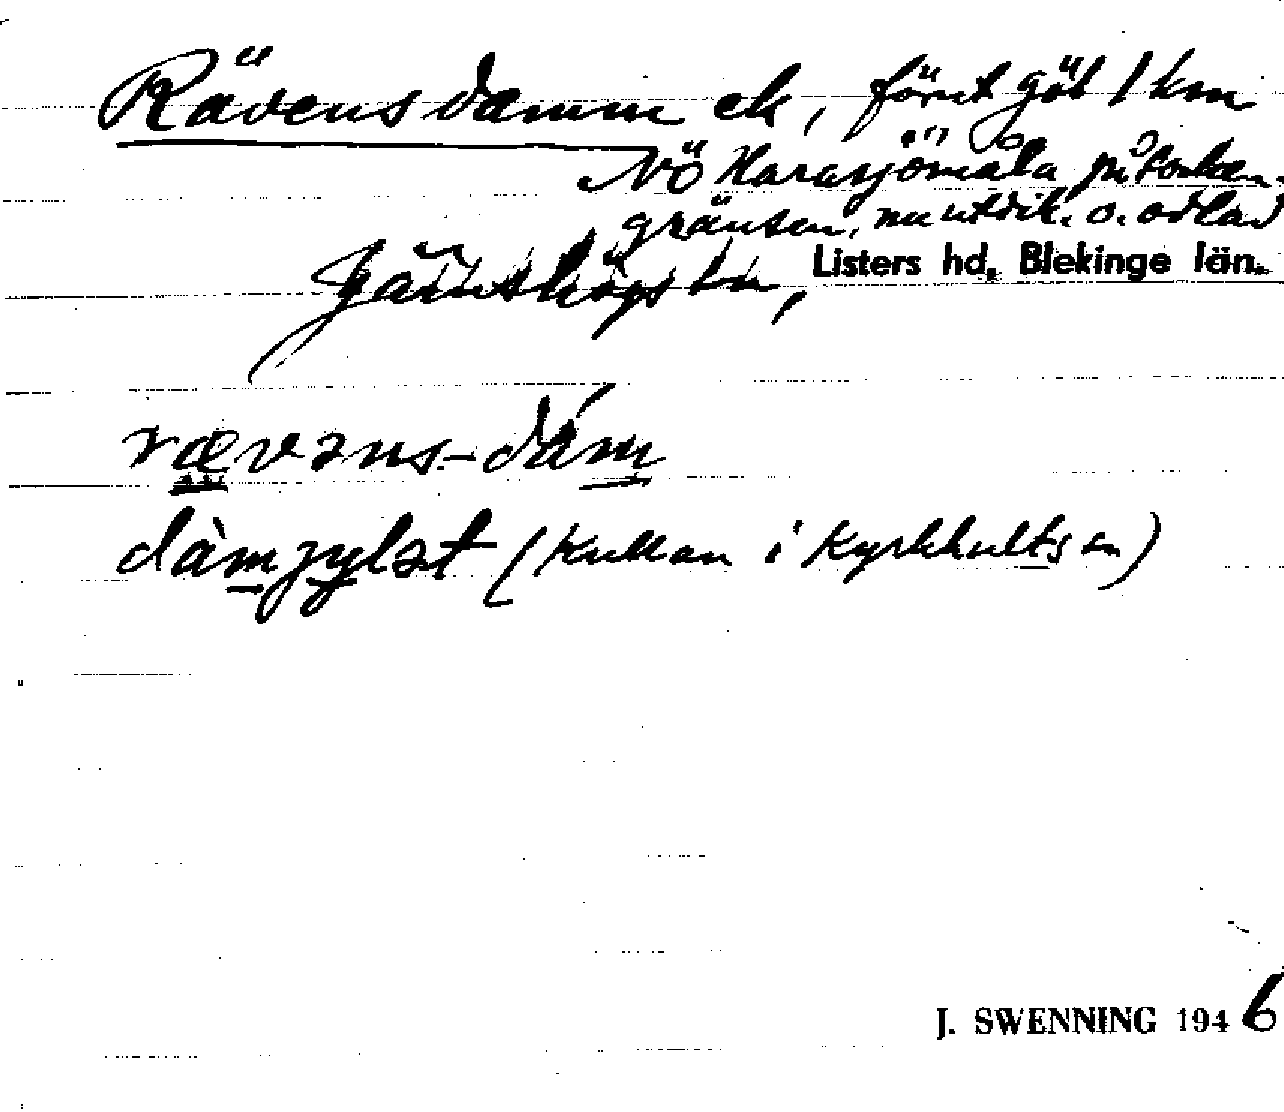 Rävens damm ek, förut göl 1 km
NÖ Harasjömåla på socken-
gränsen, nu utdik. o. odlad
Jämshögs sn, Listers hd, Blekinge län.
rævəns-dám
dàmjylət (Kullan i Kyrkhults sn)
J. SWENNING 1946